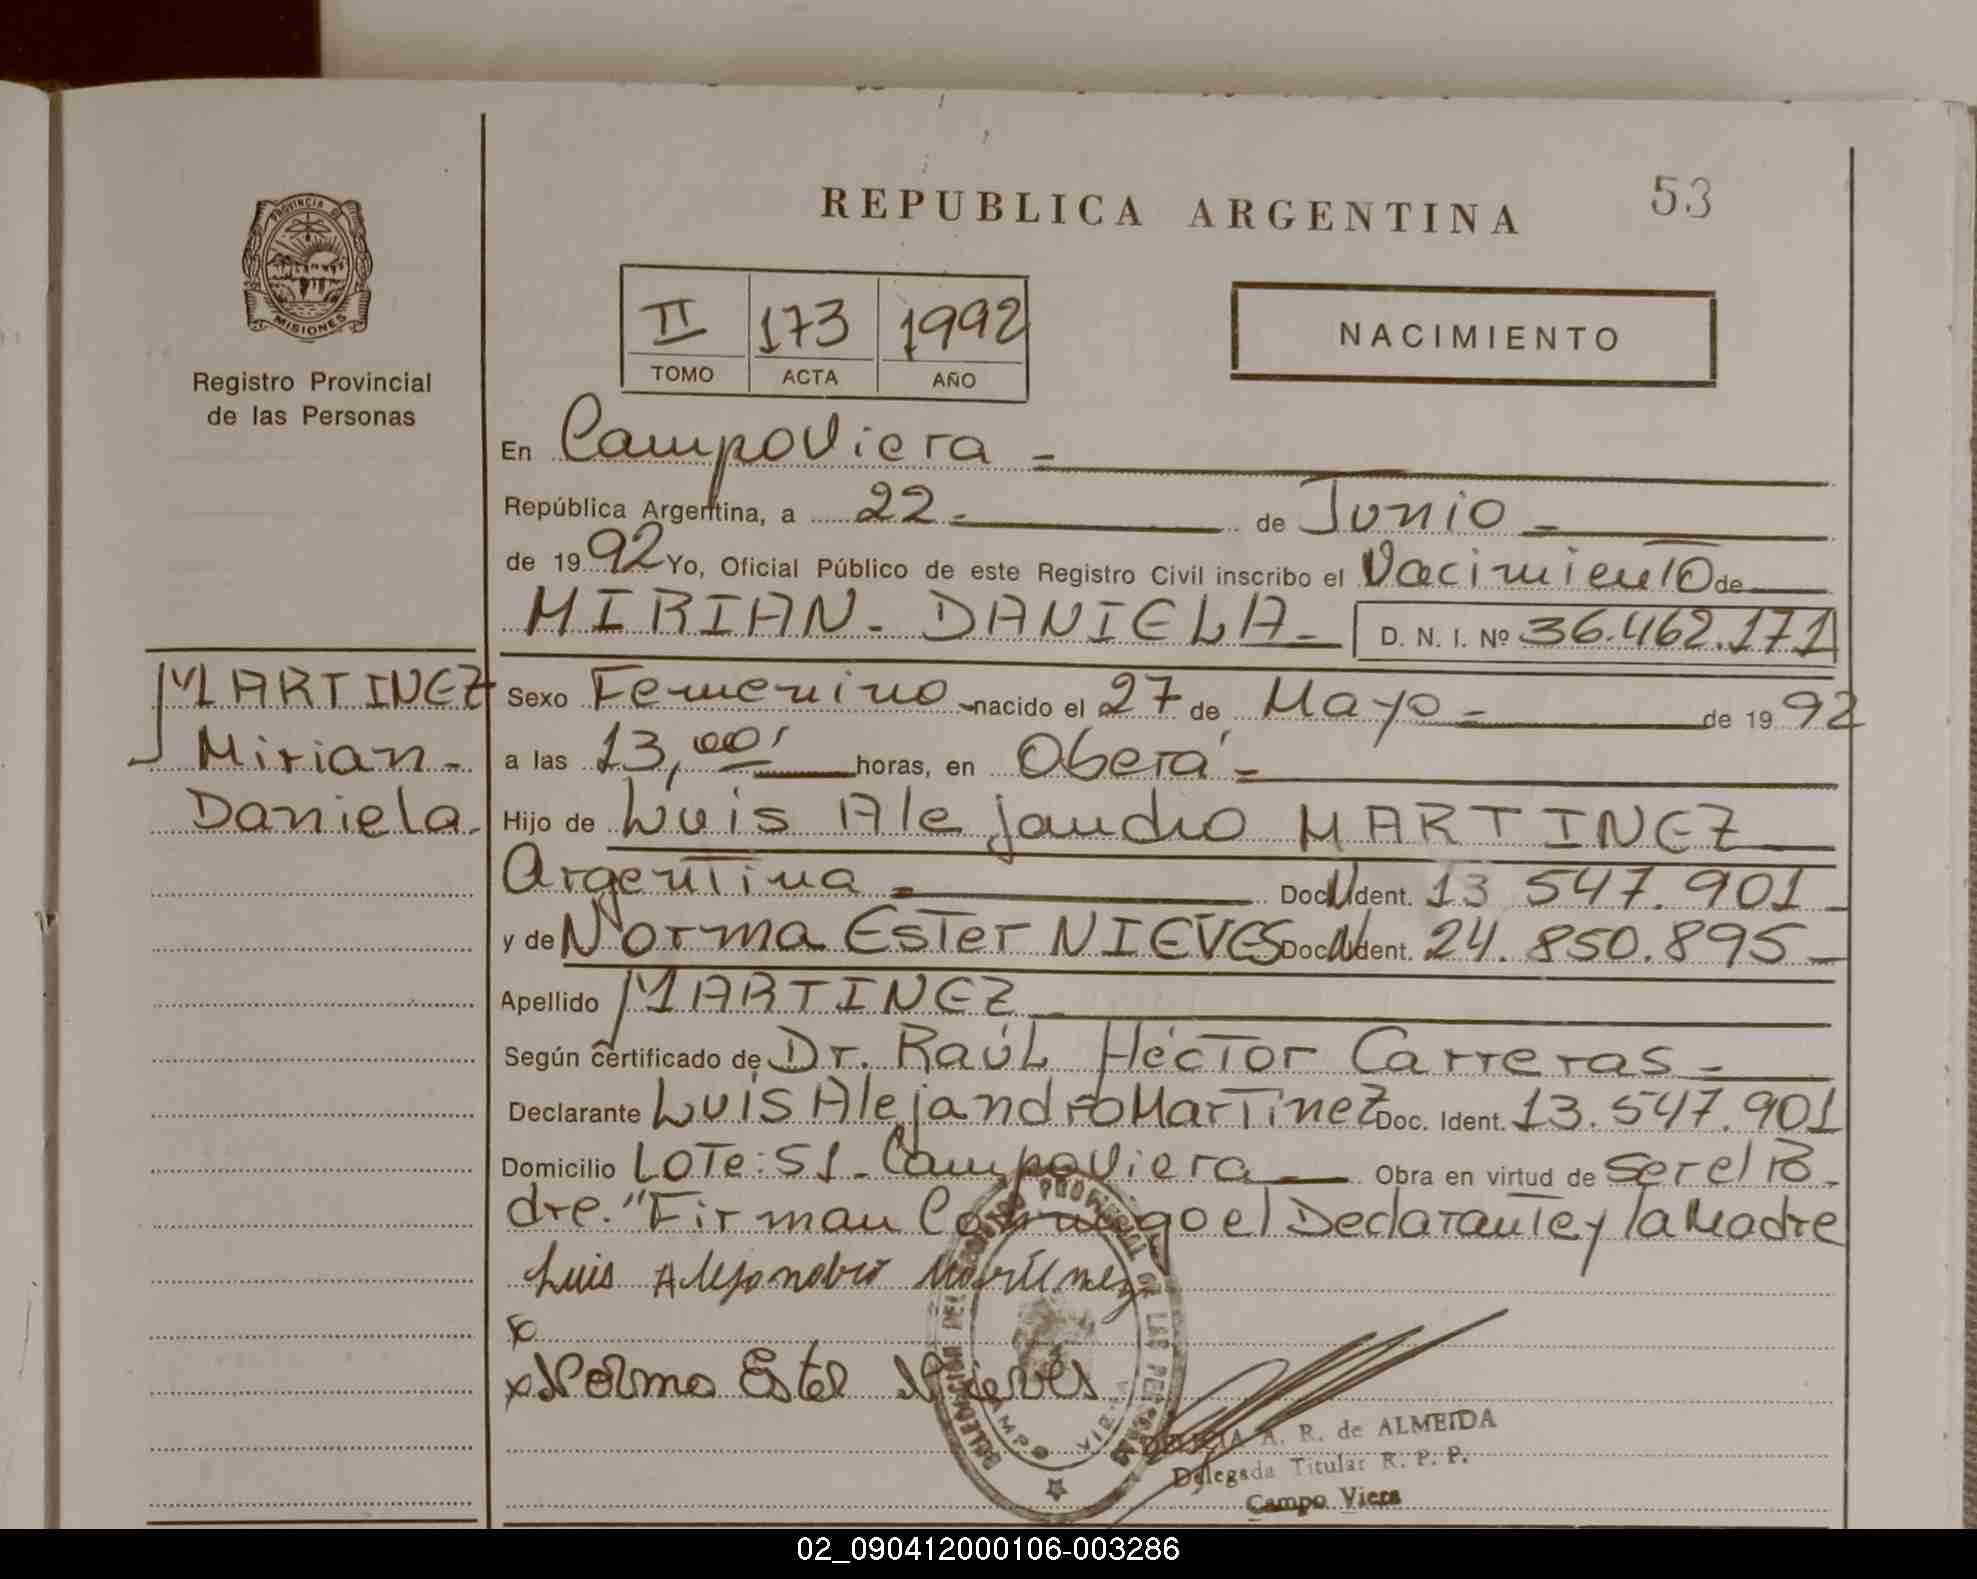 53
REPUBLICA ARGENTINA
PROVINCIA DE
MISIONES
Registro Provincial
de las Personas
II 173 1992
TOMO ACTA AÑO
NACIMIENTO
En Campo Viera -
República Argentina, a 22 - de Junio -
de 1992 Yo, Oficial Público de este Registro Civil inscribo el Nacimiento de
MIRIAN - DANIELA - D. N. I. Nº 36.462.171
MARTINEZ
Mirian -
Daniela.
Sexo Femenino - nacido el 27 de Mayo - de 1992
a las 13,00' horas, en Oberá -
Hijo de Luis Alejandro MARTINEZ
Argentina - Doc. Ident. 13 547.901 -
y de Norma Ester NIEVES Doc. Ident. 24.850.895 -
Apellido MARTINEZ
Según certificado de Dr. Raúl Héctor Carreras -
Declarante Luis Alejandro Martinez Doc. Ident. 13.547.901
Domicilio Lote: 51 - Campo Viera Obra en virtud de ser el Pa-
dre. "Firman Conmigo el Declarante y la Madre
Luis Alejandro Martinez
x
x Norma Ester Nieves
DELEGACION DEL REGISTRO PROVINCIAL DE LAS PERSONAS
CAMPO VIERA
A. R. de ALMEIDA
Delegada Titular R. P. P.
Campo Viera
02_090412000106-003286